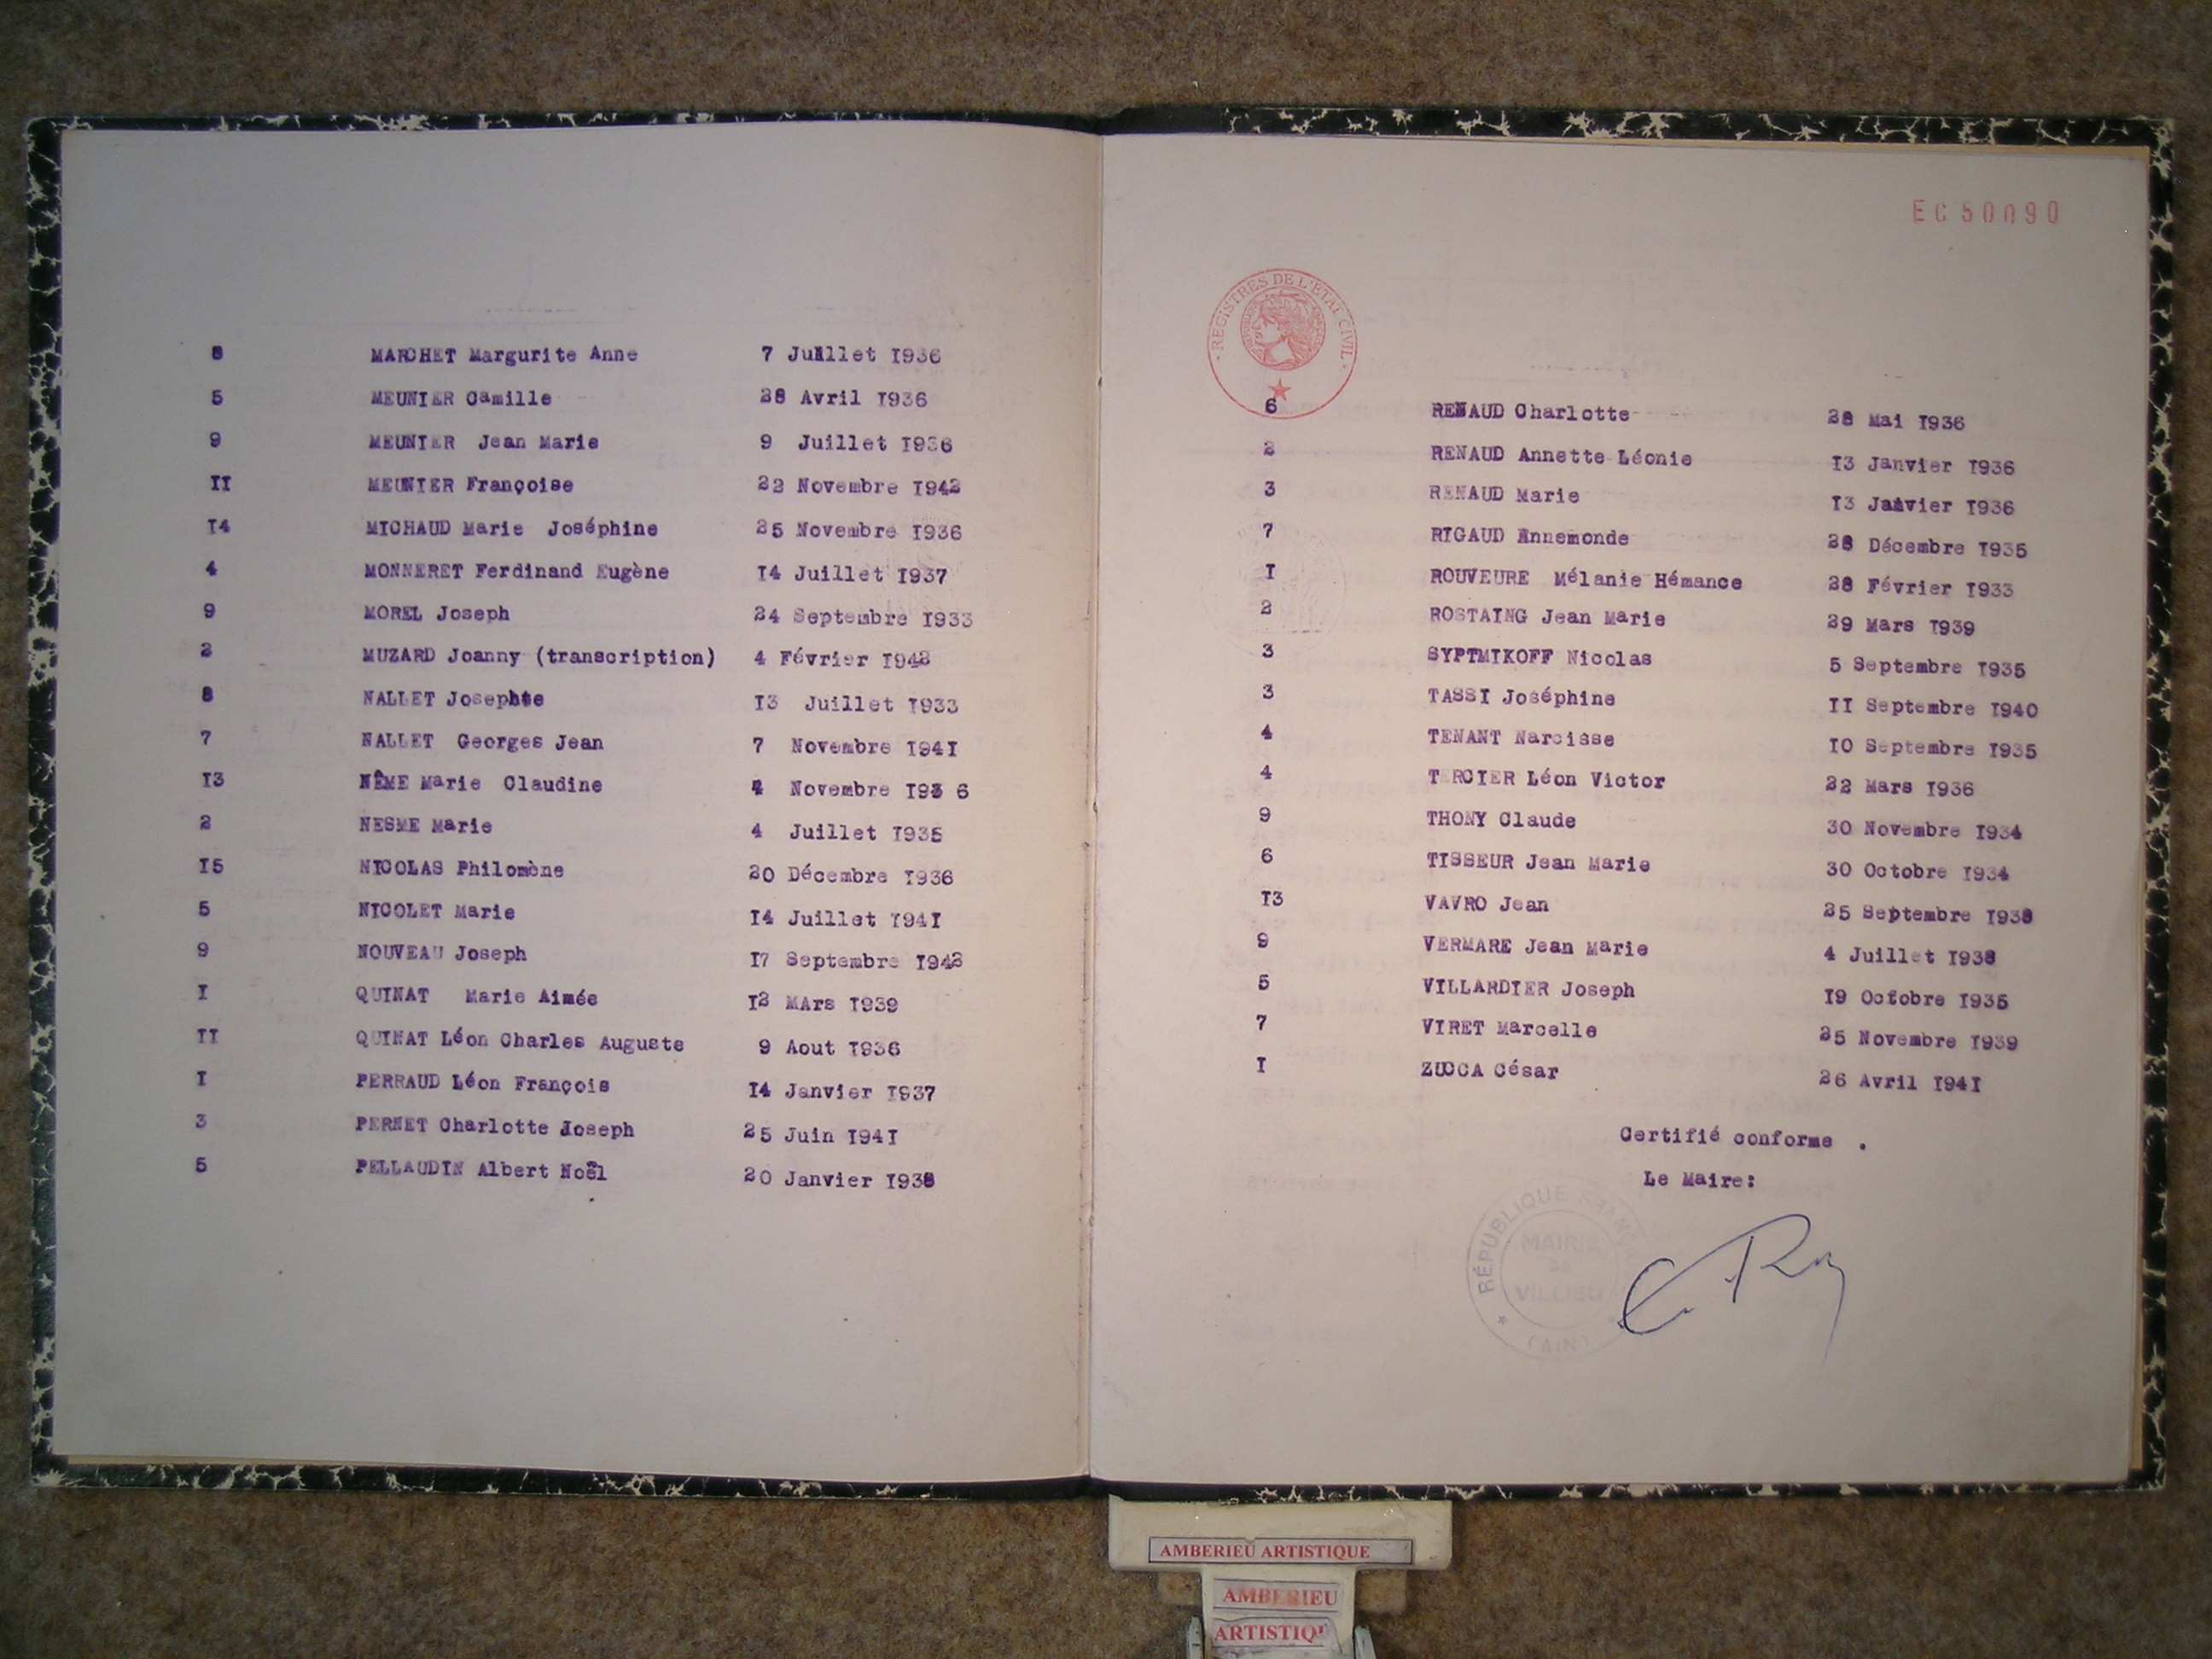 8 MARCHET Margurite Anne 7 Juillet I936
5 MEUNIER Camille 28 Avril I936
9 MEUNIER Jean Marie 9 Juillet I936
II MEUNIER Françoise 22 Novembre I942
I4 MICHAUD Marie Joséphine 25 Novembre I936
4 MONNERET Ferdinand Eugène I4 Juillet I937
9 MOREL Joseph 24 Septembre I933
2 MUZARD Joanny (transcription) 4 Février I942
8 NALLET Josephte I3 Juillet I933
7 NALLET Georges Jean 7 Novembre I94I
I3 NÊME Marie Claudine 4 Novembre I93 6
2 NESME Marie 4 Juillet I935
I5 NICOLAS Philomène 20 Décembre I936
5 NICOLET Marie I4 Juillet I94I
9 NOUVEAU Joseph I7 Septembre I942
I QUINAT Marie Aimée I2 MArs I939
II QUINAT Léon Charles Auguste 9 Aout I936
I PERRAUD Léon François I4 Janvier I937
3 PERNET Charlotte Joseph 25 Juin I94I
5 PELLAUDIN Albert Noël 20 Janvier I938
EC 50090
· REGISTRES DE L'ÉTAT CIVIL ·
6 RENAUD Charlotte 28 Mai I936
2 RENAUD Annette Léonie I3 Janvier I936
3 RENAUD Marie I3 Janvier I936
7 RIGAUD Annemonde 28 Décembre I935
I ROUVEURE Mélanie Hémance 28 Février I933
2 ROSTAING Jean Marie 29 Mars I939
3 SYPTMIKOFF Nicolas 5 Septembre I935
3 TASSI Joséphine II Septembre I940
4 TENANT Narcisse IO Septembre I935
4 TERCIER Léon Victor 22 Mars I936
9 THONY Claude 30 Novembre I934
6 TISSEUR Jean Marie 30 Octobre I934
I3 VAVRO Jean 25 Septembre I938
9 VERMARE Jean Marie 4 Juillet I938
5 VILLARDIER Joseph I9 Octobre I935
7 VIRET Marcelle 25 Novembre I939
I ZUCCA César 26 Avril I94I
Certifié conforme .
Le Maire:
RÉPUBLIQUE FRANÇAISE
MAIRIE
DE
VILLIEU
(AIN)
AMBERIEU ARTISTIQUE
AMBERIEU
ARTISTIQ